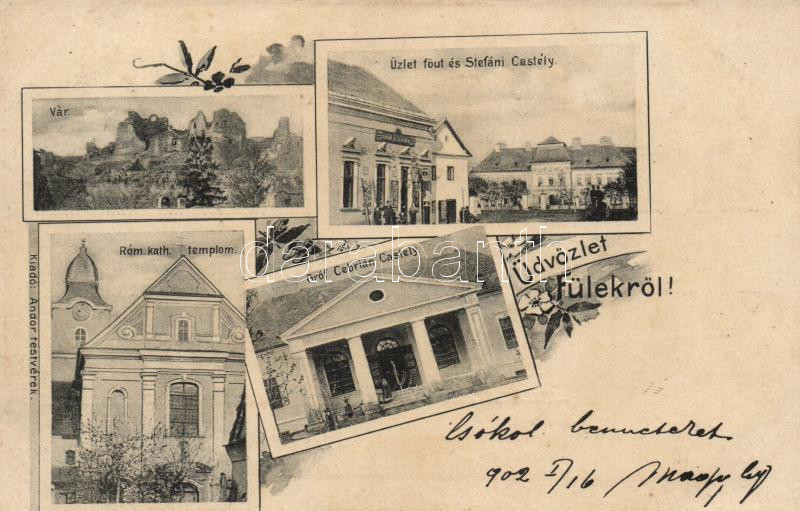 Üzlet föut és Stefáni Castély.
Vàr.
Róm. kath. templom.
Gróf Cebrián Castély
Üdvözlet
Fülekröl!
Kiadó: Andor testvérek.
darabanth
Csókol benneteket
902 I/16